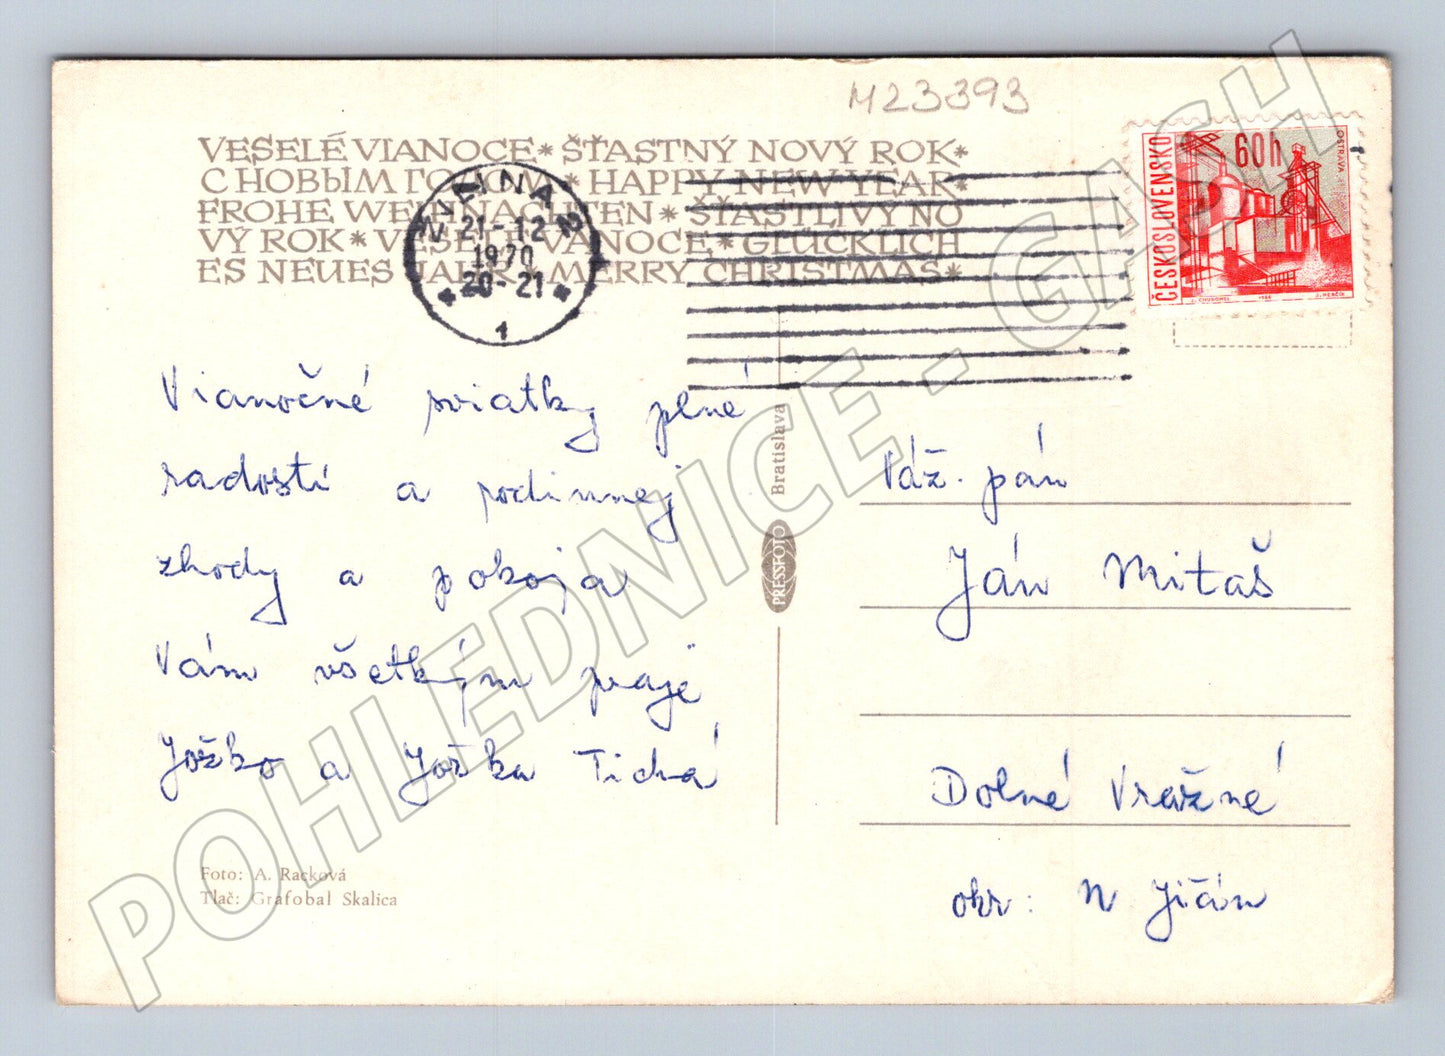 M23393
VESELÉ VIANOCE * ŠŤASTNÝ NOVÝ ROK *
С НОВЫМ ГО * HAPPY NEW YEAR *
FROHE WEIHNACHTEN * ŠŤASTLIVÝ NO
VÝ ROK * VESELÉ VÁNOCE * GLÜCKLICH
ES NEUES JAHR * MERRY CHRISTMAS *
21-12
1970
20-21
1
ČESKOSLOVENSKO
60h
OSTRAVA
Vianočné sviatky plné
radosti a rodinnej
zhody a pokoja
Vám všetkým praje
Jožko a Jožka Tichá
Foto: A. Racková
Tlač: Grafobal Skalica
PRESSFOTO Bratislava
Váž. pán
Ján Mitaš
Dolné Vražné
okr: N Jičín
POHLEDNICE - GASH